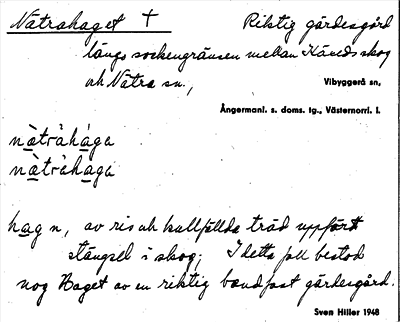 Nätrahaget † Riktig gärdesgård
längs sockengränsen mellan skog
och Nätra sn.,
Vibyggerå sn,
Ångermanl. s. doms. tg., Västernorrl. l.
nὰtrὰhága
nὰtrὰhaga
hag n, av ris och kullfällda träd uppfört
stängsel i skog; I detta fall bestod
nog Haget av en riktig bandfast gärdesgård.
Sven Hiller 1948